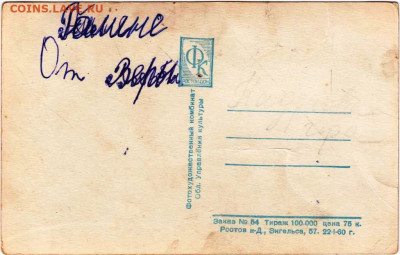 COINS.LAVE.RU
От Веры
ФК
РОСТОВ н-Д
Фотохудожественный комбинат
Обл. Управления культуры
Заказ № 54 Тираж 100.000 цена 75 к.
Ростов н-Д., Энгельса, 57. 22-I-60 г.